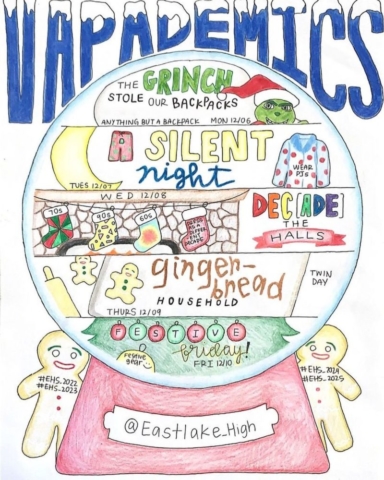 VAPADEMICS
THE GRINCH
STOLE OUR BACKPACKS
ANYTHING BUT A BACKPACK MON 12/06
A SILENT
night
WEAR
PJs
TUES 12/07
WED 12/08
70s
90s
60s
DRESS
AS A
DIFFER
ENT
DECADE
DEC[ADE]
THE
HALLS
ginger-
bread
HOUSEHOLD
TWIN
DAY
THURS 12/09
FESTIVE
festive
gear
friday!
FRI 12/10
#EHS_2022
#EHS_2023
#EHS_2024
#EHS_2025
@Eastlake_High